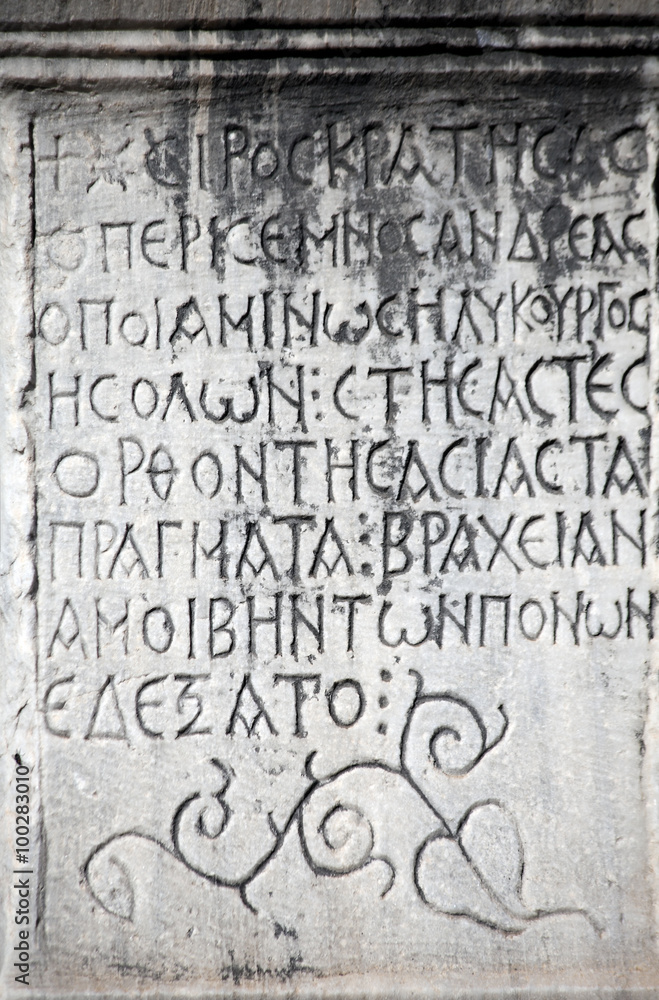 + ΧΕΙΡΟϹΚΡΑΤΗϹΑϹ
ΟΠΕΡΙϹΕΜΝΟϹΑΝΔΡΕΑϹ
ΟΠΟΙΑΜΙΝΩϹΗΛΥΚΟΥΡΓΟϹ
ΗϹΟΛΩΝ:ϹΤΗϹΑϹΤΕϹ
ΟΡΘΟΝΤΗϹΑϹΙΑϹΤΑ
ΠΡΑΓΜΑΤΑ:ΒΡΑΧΕΙΑΝ
ΑΜΟΙΒΗΝΤΩΝΠΟΝΩΝ
ΕΔΕΞΑΤΟ:
Adobe Stock | #100283010